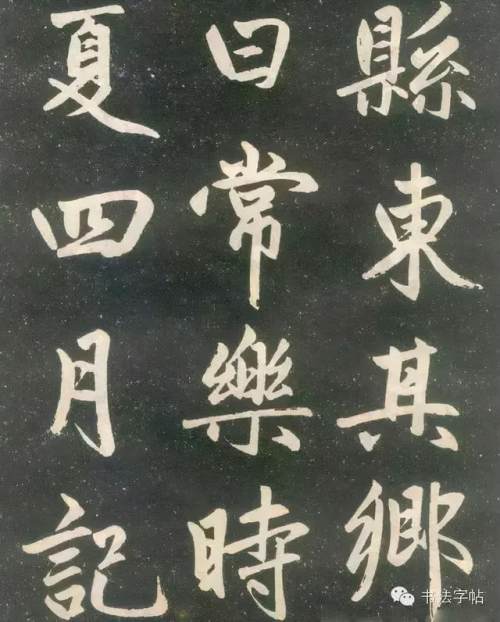 縣東其鄉
曰常樂時
夏四月記
书法字帖